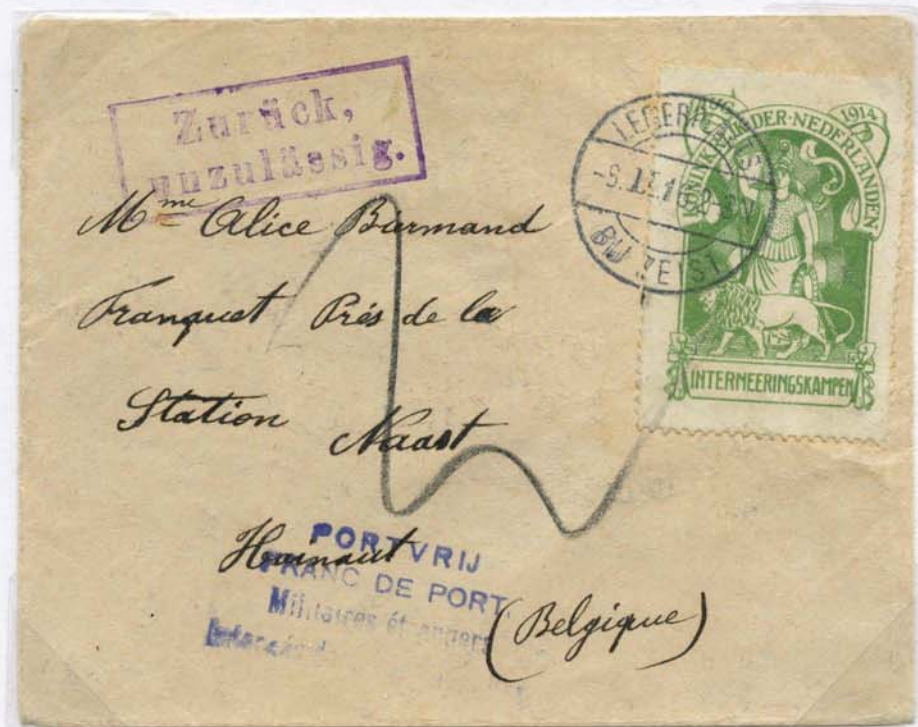 Zurück,
unzulässig.
LEGERPLAATS
BIJ ZEIST
AUG 1914
KONINKRIJK DER NEDERLANDEN
INTERNEERINGSKAMPEN
Mme Alice Burmand
Franquet Près de la
Station Naast
Hainaut
(Belgique)
PORTVRIJ
FRANC DE PORT
Militaires étrangers